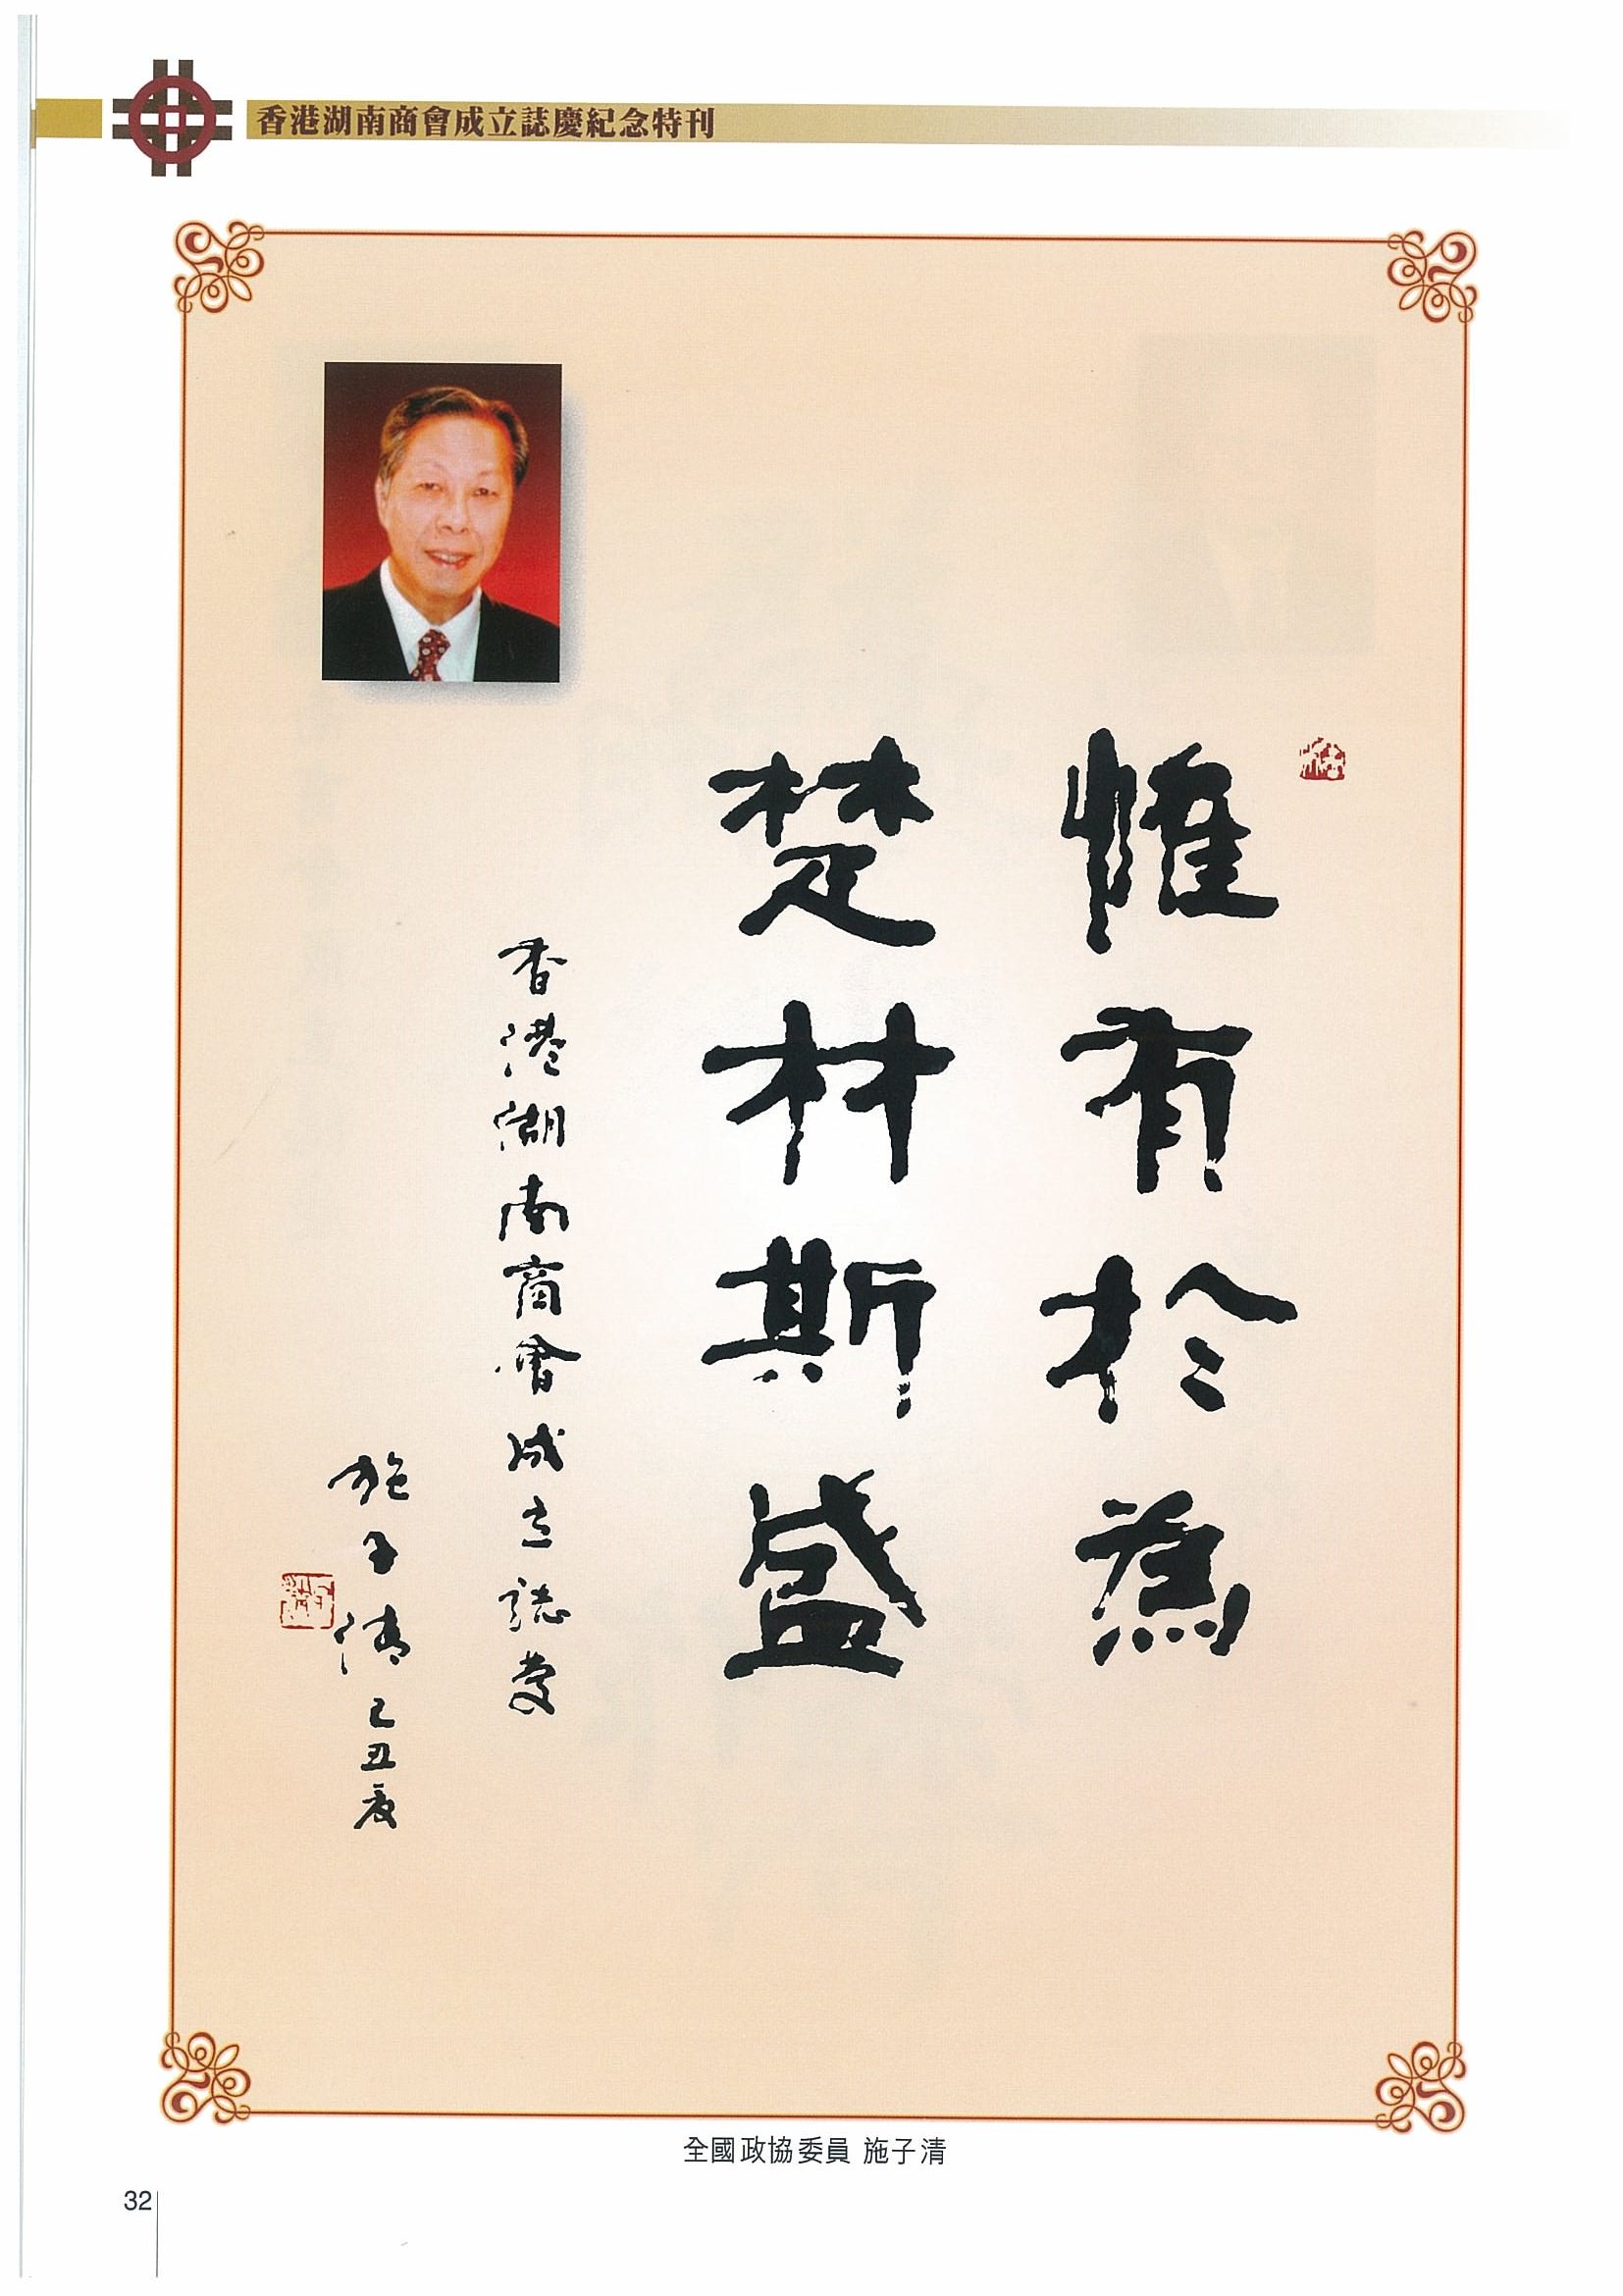 香港湖南商會成立誌慶紀念特刊
惟有於為
楚材斯盛
香港湖南商會成立誌慶
施子清己丑夏
全國政協委員 施子清
32